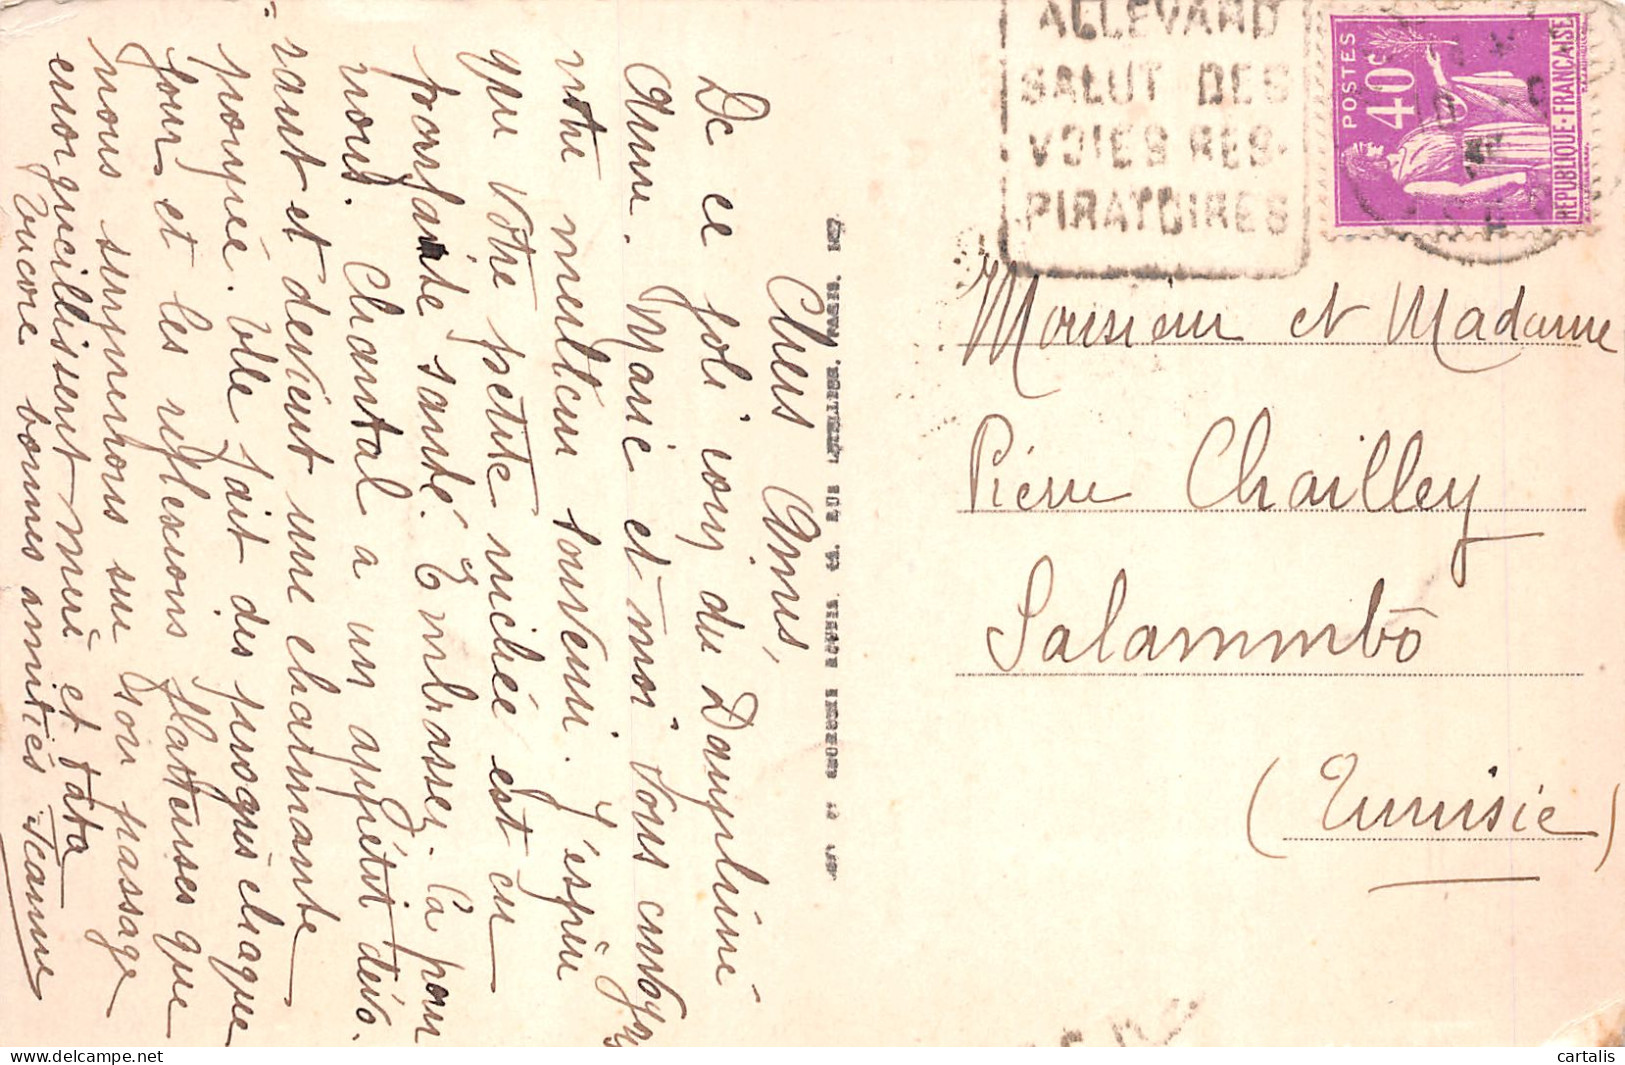 ALLEVARD
SALUT DES
VOIES RES-
PIRATOIRES
POSTES
40c
REPUBLIQUE·FRANÇAISE
Monsieur et Madame
Pierre Chailley
Salammbô
(Tunisie)
Chers Amis,
De ce joli coin du Dauphiné
Anne. Marie et moi vous envoyons
notre meilleur souvenir. J'espère
que votre petite nichée est en
parfaite santé. Embrassez. la pour
nous. Chantal a un appétit dévo.
rant et devient une charmante
poupée. Elle fait des progrès chaque
jour et les réflexions flatteuses que
nous surprenons sur son passage
enorgueillissent mère et tata
Encore bonnes amitiés Jeanne
cartalis